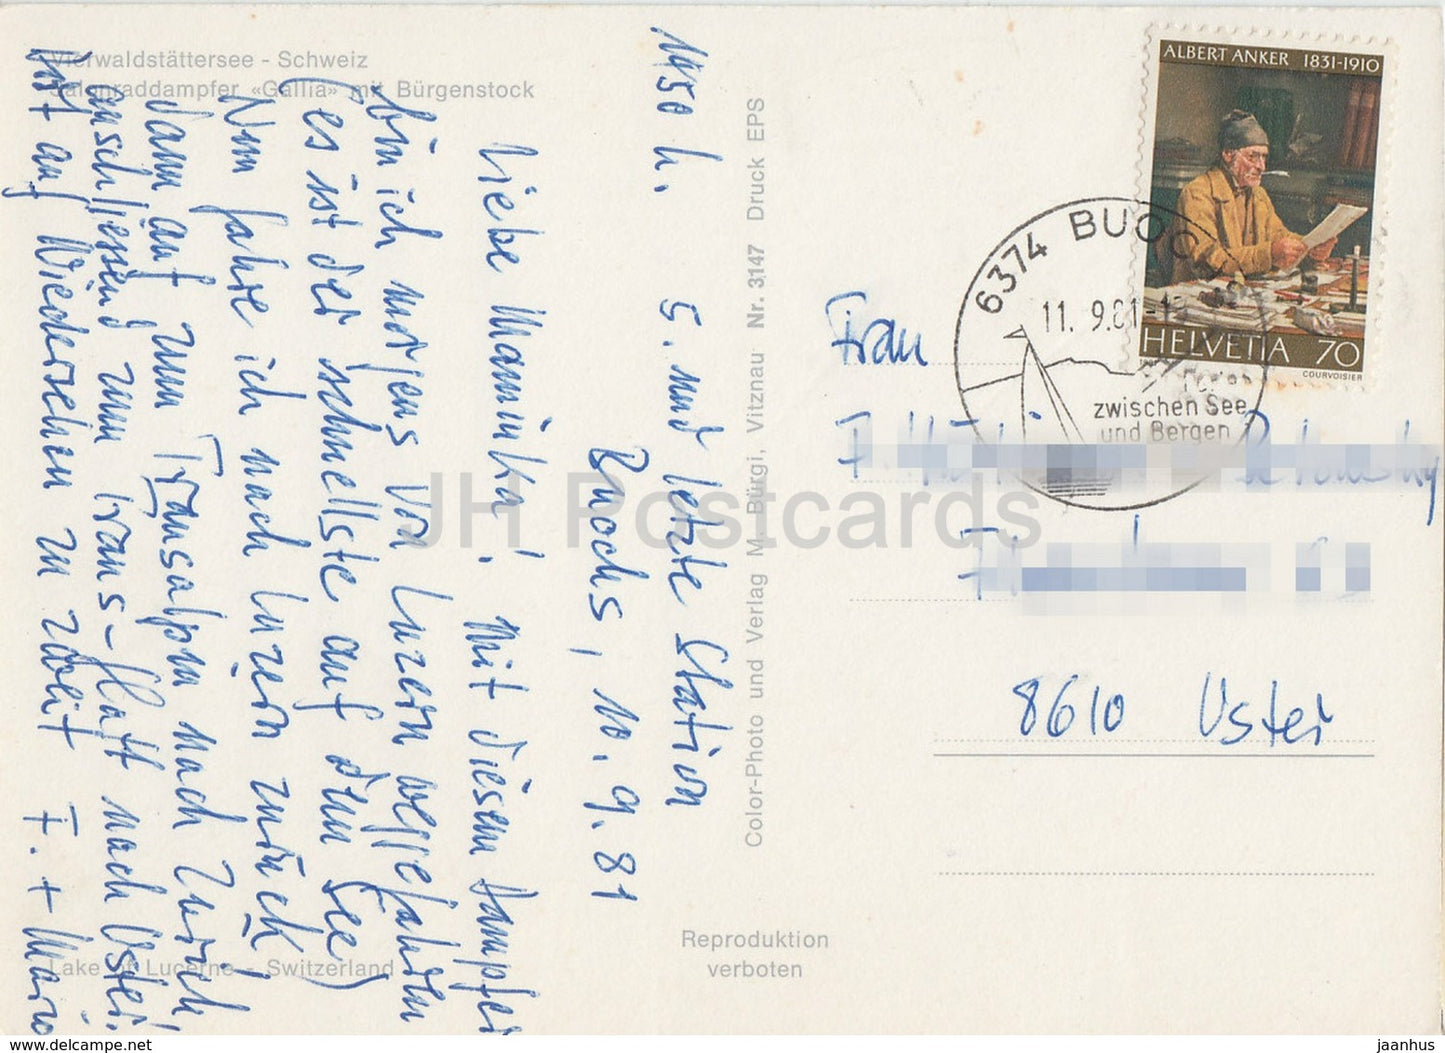 Vierwaldstättersee - Schweiz
Salonraddampfer «Gallia» mit Bürgenstock
1450 h. 5. und letzte Station
Buochs, 10. 9. 81
Liebe Maminka! Mit diesem Dampfer
bin ich morgens von Luzern weggefahren
(es ist der schnellste auf dem See)
Nun fahre ich nach Luzern zurück,
dann auf zum Transalpin nach Zürich
anschliessend zum Trans-Glatt nach Uster.
Bist auf Wiedersehen zu zweit F. + Mario
Lake of Lucerne - Switzerland
Color-Photo und Verlag M. Bürgi, Vitznau Nr. 3147 Druck EPS
Reproduktion
verboten
ALBERT ANKER 1831-1910
HELVETIA 70
COURVOISIER
6374 BUOCHS
11. 9.81
zwischen See
und Bergen
Frau
8610 Uster
JH Postcards
www.delcampe.net
jaanhus